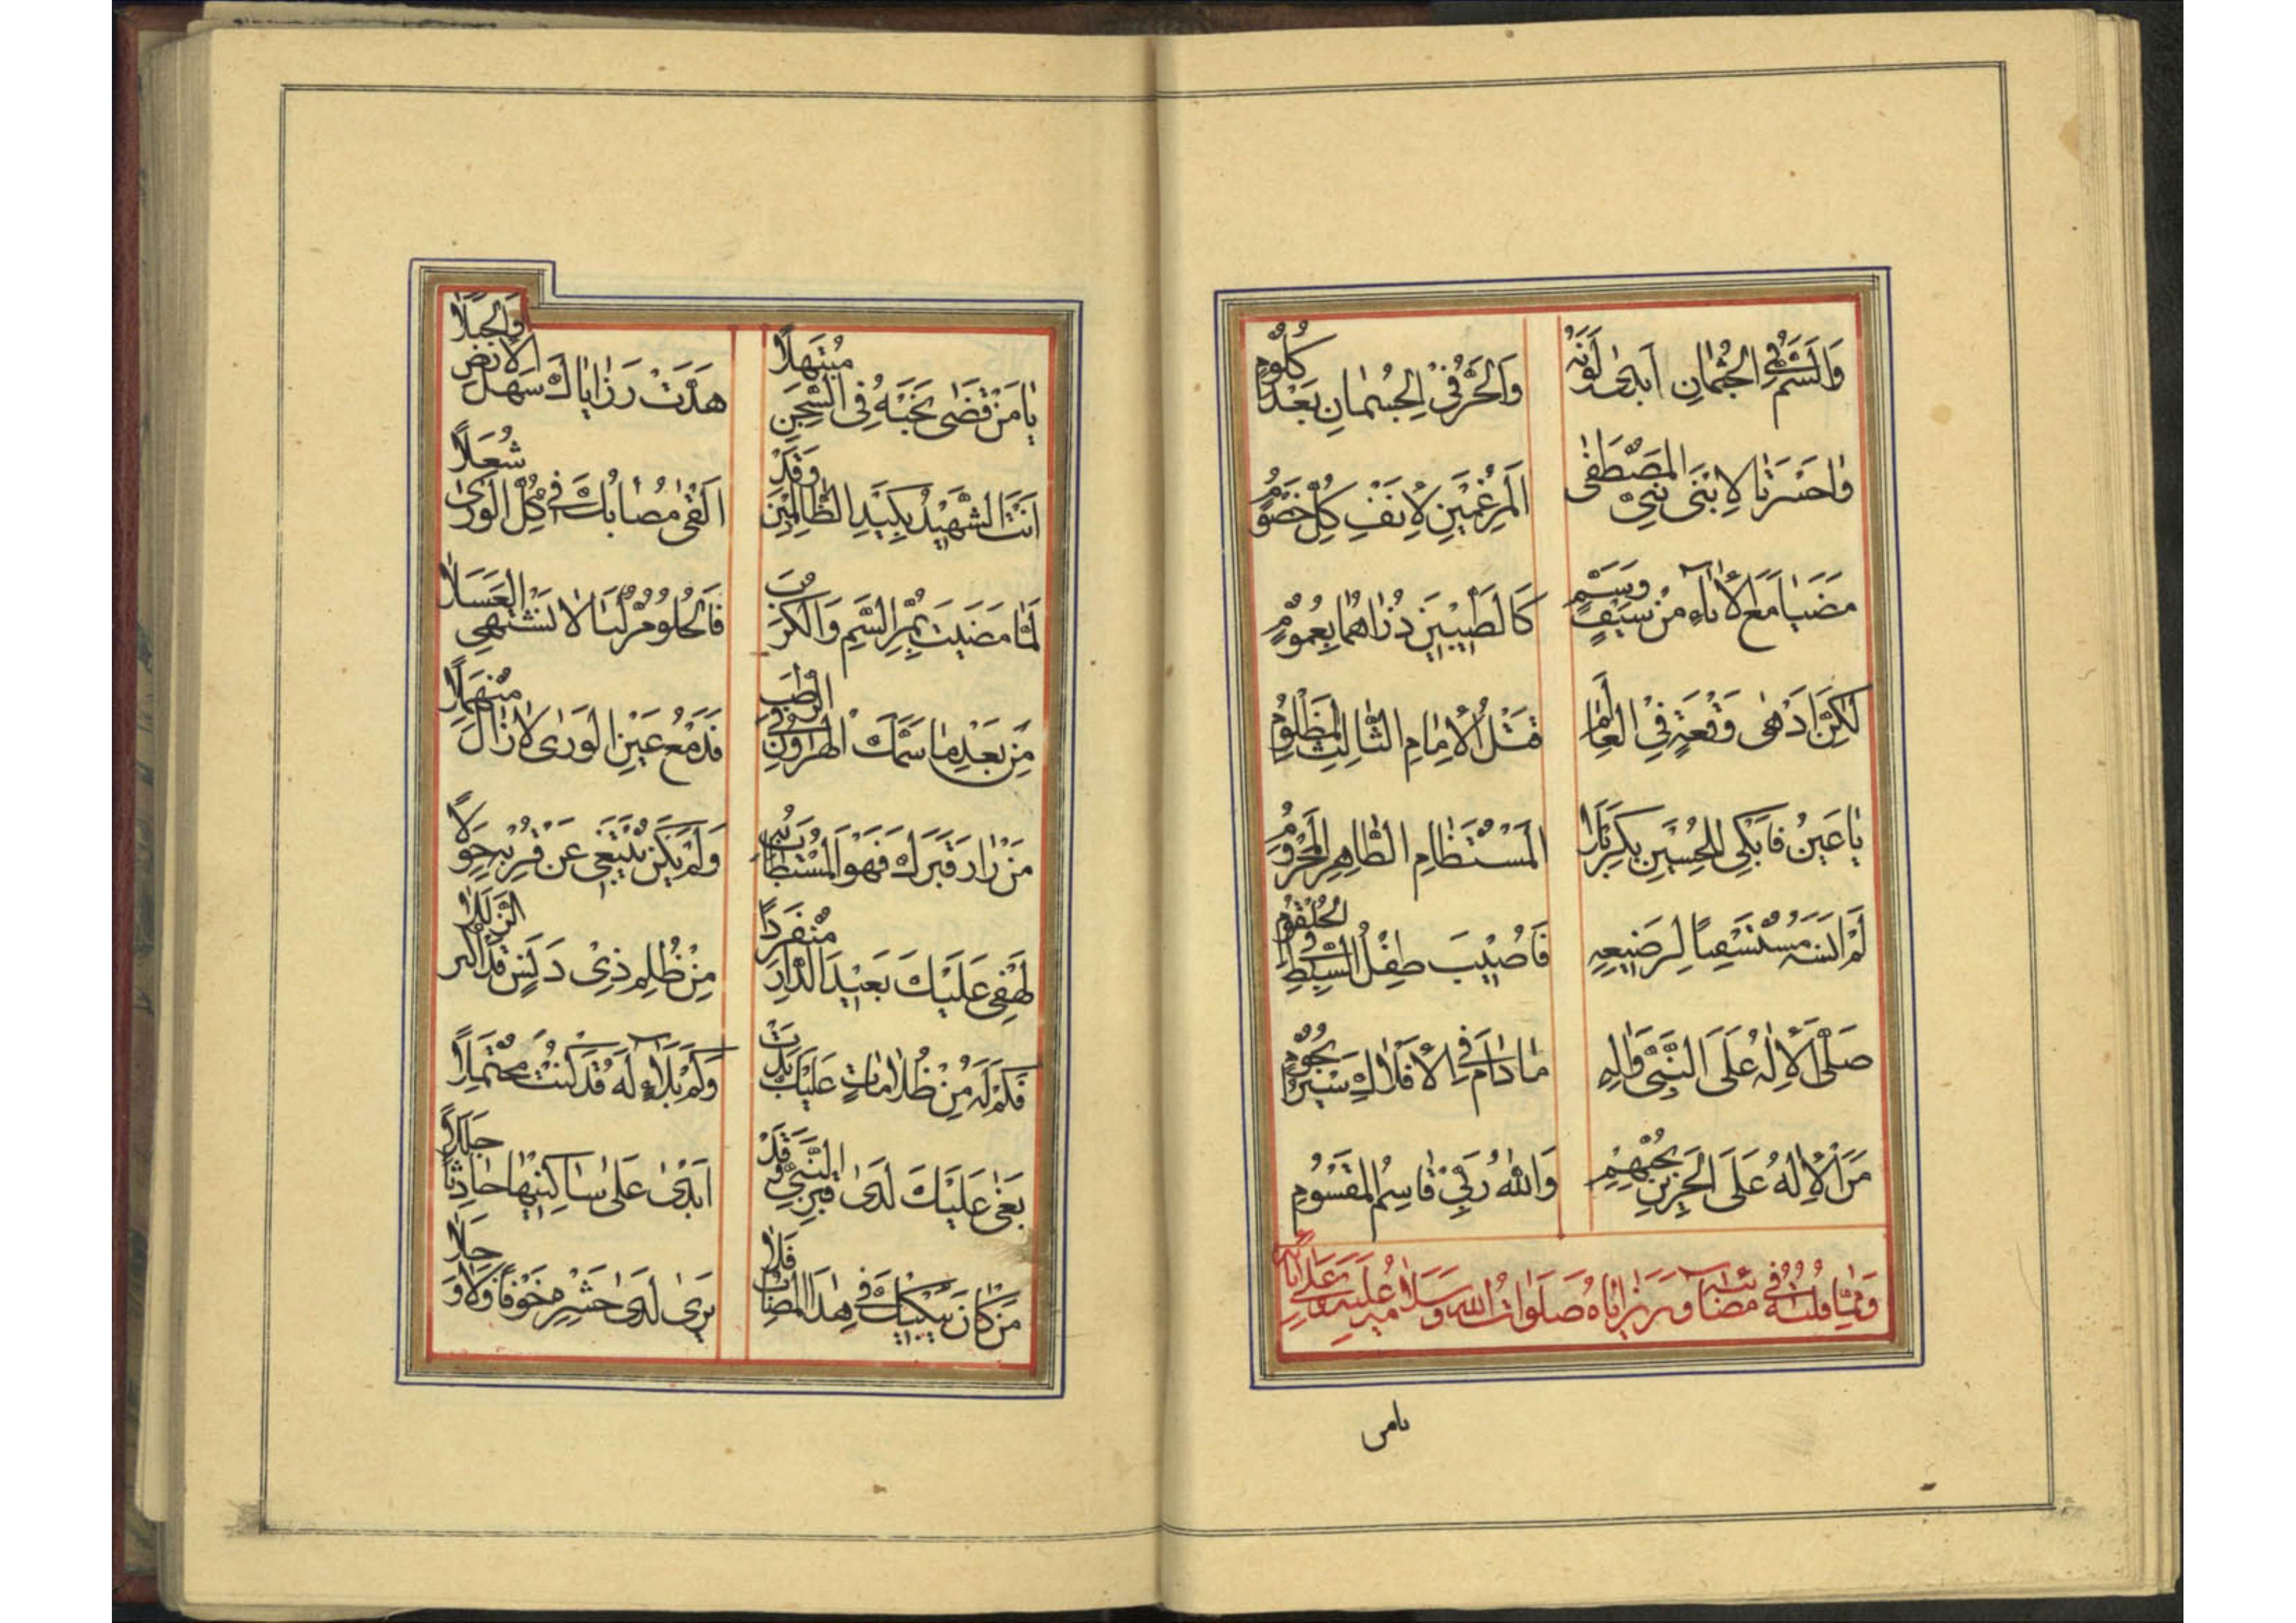 وَالسَّمُّ فِي الْجُثْمَانِ اَبْدٰى لَوْنَهُ
وَالْحَرُّ فِيْ الْجُسْمَانِ بَعْدَ كُلُومٍ
وَاحَسْرَتَا لِابْنَى بَنِيْ الْمُصْطَفٰى
الْمُرْغَمَيْنِ لِاَنْفِ كُلِّ خَصُومٍ
مَضَيَا مَعَ الْاٰبَاءِ مِنْ سَيْفٍ وَسَمٍّ
كَالطَّيِّبِيْنَ ذُرَاهُمَا بِعُمُومٍ
لٰكِنَّ اَدْهٰى وَقْعَةٍ فِيْ الْعَالَمِ
قَتْلُ الْاِمَامِ الثَّالِثِ الْمَظْلُومِ
يَا عَيْنُ فَابْكِى لِلْحُسَيْنِ
الْمُسْتَظَامِ الطَّاهِرِ الْمَحْرُومِ
لَمْ اَنْسَهُ مُسْتَسْقِيًا لِرَضِيْعِهِ
فَاُصِيْبَ طِفْلُ السِّبْطِ فِى الْحُلْقُومِ
صَلَّى الْاِلٰهُ عَلَى النَّبِيِّ وَاٰلِهِ
مَا دَامَ فِى الْاَفْلَاكِ سَيْرُ نُجُومٍ
مَنَّ الْاِلٰهُ عَلَى الْحَزِيْنِ بِحُبِّهِمْ
وَاللّٰهُ رَبِّيْ قَاسِمُ الْمَقْسُومِ
وَمِمَّا قُلْتُهُ فِى مَصَائِبِهِ وَرَزَايَاهُ صَلَوَاتُ اللّٰهِ وَسَلَامُهُ عَلَيْهِ وَعَلٰى اٰبَائِهِ
يامن
يَا مَنْ قَضٰى نَحْبَهُ فِى السِّجْنِ مُبْتَهِلًا
هَدَّتْ رَزَايَاكَ سَهْلَ الْاَرْضِ وَالْجَبَلَا
اَنْتَ الشَّهِيْدُ بِكَيْدِ الظَّالِمِيْنَ وَقَدْ
اَلْقٰى مُصَابُكَ فِى كُلِّ الْوَرٰى شُعَلًا
لَمَّا مَضَيْتَ بِمُرِّ السَّمِّ وَالْكُرَبِ
فَالْحُلْوُ مُرٌّ لَنَا لَا نَشْتَهِى الْعَسَلَا
مِنْ بَعْدِ مَا سَمَّكَ الْهٰرُونُ فِى الرُّطَبِ
فَدَمْعُ عَيْنِ الْوَرٰى لَا زَالَ مُنْهَمِلًا
مَنْ زَارَ قَبْرَكَ فَهُوَ الْمُسْتَطَابُ
وَلَمْ يَكُنْ يَبْتَغِى عَنْ قُرْبِهِ حِوَلًا
لَهْفِى عَلَيْكَ بَعِيْدَ الدَّارِ مُنْفَرِدًا
مِنْ ظُلْمِ ذِىْ دَنَسٍ قَدْ اَكْثَرَ الزَّلَلَا
فَكَمْ لَهُ مِنْ ظُلَامَاتٍ عَلَيْكَ بَدَتْ
وَكَمْ بَلَاءٍ لَهُ قَدْ كُنْتَ مُحْتَمِلًا
بَغٰى عَلَيْكَ لَدٰى قَبْرِ النَّبِيِّ وَقَدْ
اَبْدٰى عَلٰى سَاكِنِيْهَا حَادِثًا جَلَلًا
مَنْ كَانَ يَبْكِيْكَ فِى هٰذَا الْمُصَابِ فَلَا
يَرٰى لَدٰى حَشْرِهِ خَوْفًا وَلَا وَجَلًا